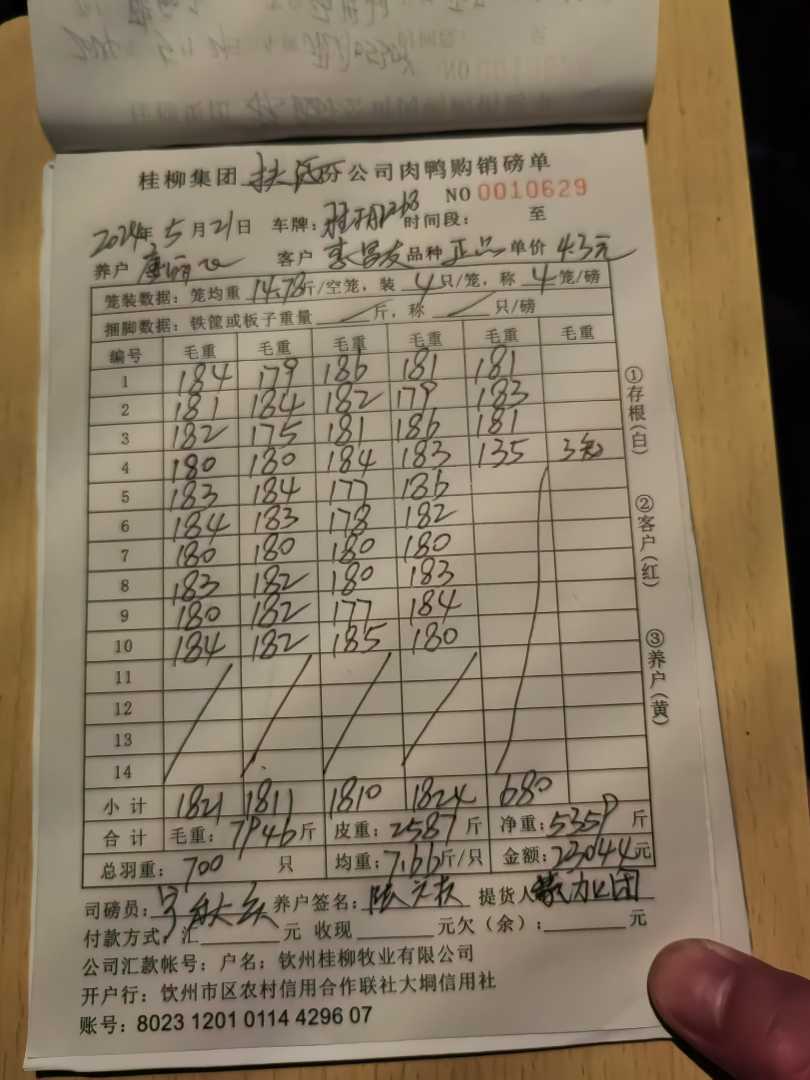 桂柳集团 公司肉鸭购销磅单
NO 0010629
2024年5月21日 车牌: 时间段: 至
养户 客户 李昌友 品种 正品 单价 4.3元
笼装数据:笼均重 14.78斤/空笼,装 4 只/笼,称 4 笼/磅
捆脚数据:铁筐或板子重量 斤,称 只/磅
编号 毛重 毛重 毛重 毛重 毛重 毛重
1 184 179 186 181 181
2 181 184 182 179 183
3 182 175 181 186 181
4 180 180 184 183 135 3笼
5 183 184 177 186
6 184 183 178 182
7 180 180 180 180
8 183 182 180 183
9 180 182 177 184
10 184 182 185 180
11
12
13
14
小计 1821 1811 1810 1824 680
合计 毛重:7946斤 皮重:2587斤 净重:5359斤
总羽重:700 只 均重:7.66斤/只 金额:23044元
司磅员: 养户签名: 提货人
付款方式:汇 元 收现 元欠(余): 元
公司汇款帐号:户名:钦州桂柳牧业有限公司
开户行:钦州市区农村信用合作联社大垌信用社
账号:8023 1201 0114 4296 07
①存根(白)
②客户(红)
③养户(黄)